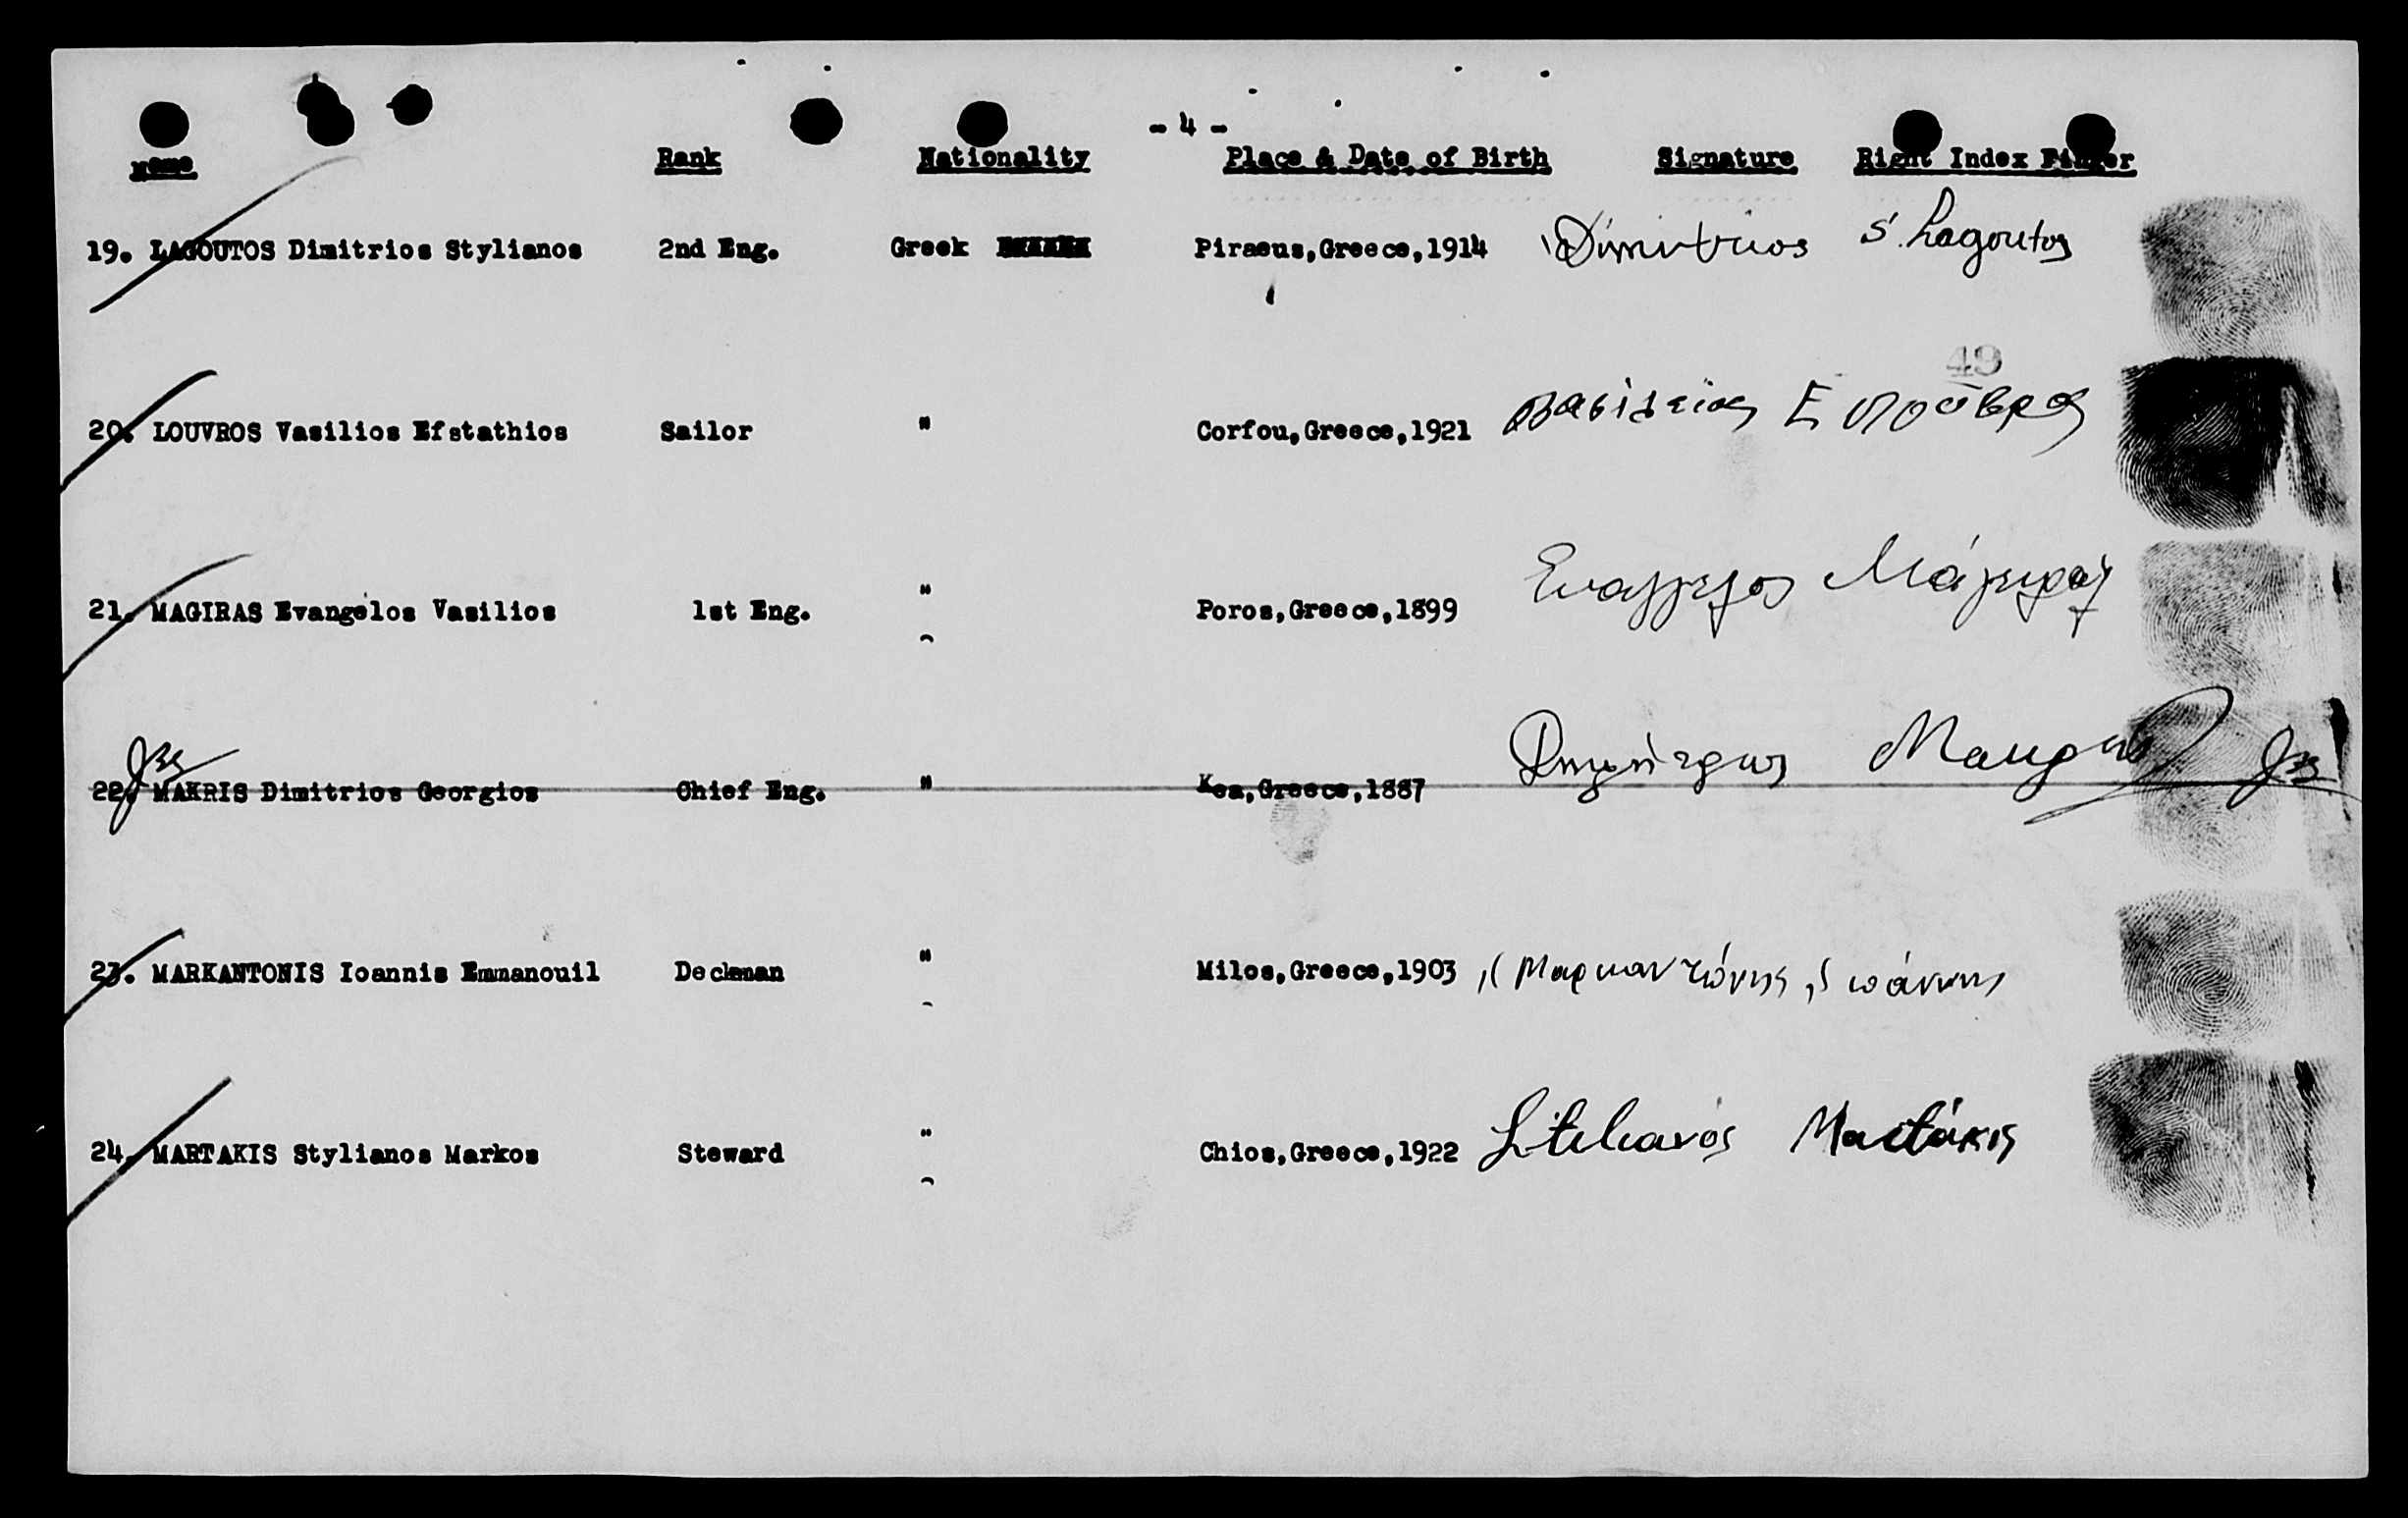 - 4 -
Name Rank Nationality Place & Date of Birth Signature Right Index Finger
19. LAGOUTOS Dimitrios Stylianos 2nd Eng. Greek Piraeus,Greece,1914 Dimitrios S. Lagoutos
49
20. LOUVROS Vasilios Efstathios Sailor " Corfou,Greece,1921 Βασίλειος Ε Λούβρος
21. MAGIRAS Evangelos Vasilios 1st Eng. " Poros,Greece,1899 Ευάγγελος Μάγειρας
22. MAKRIS Dimitrios Georgios Chief Eng. " Kea,Greece,1887 Δημήτριος Μακρής
23. MARKANTONIS Ioannis Emmanouil Deckman " Milos,Greece,1903 Μαρκαντώνης Ιωάννης
24. MARTAKIS Stylianos Markos Steward " Chios,Greece,1922 Stelianós Μαρτάκις